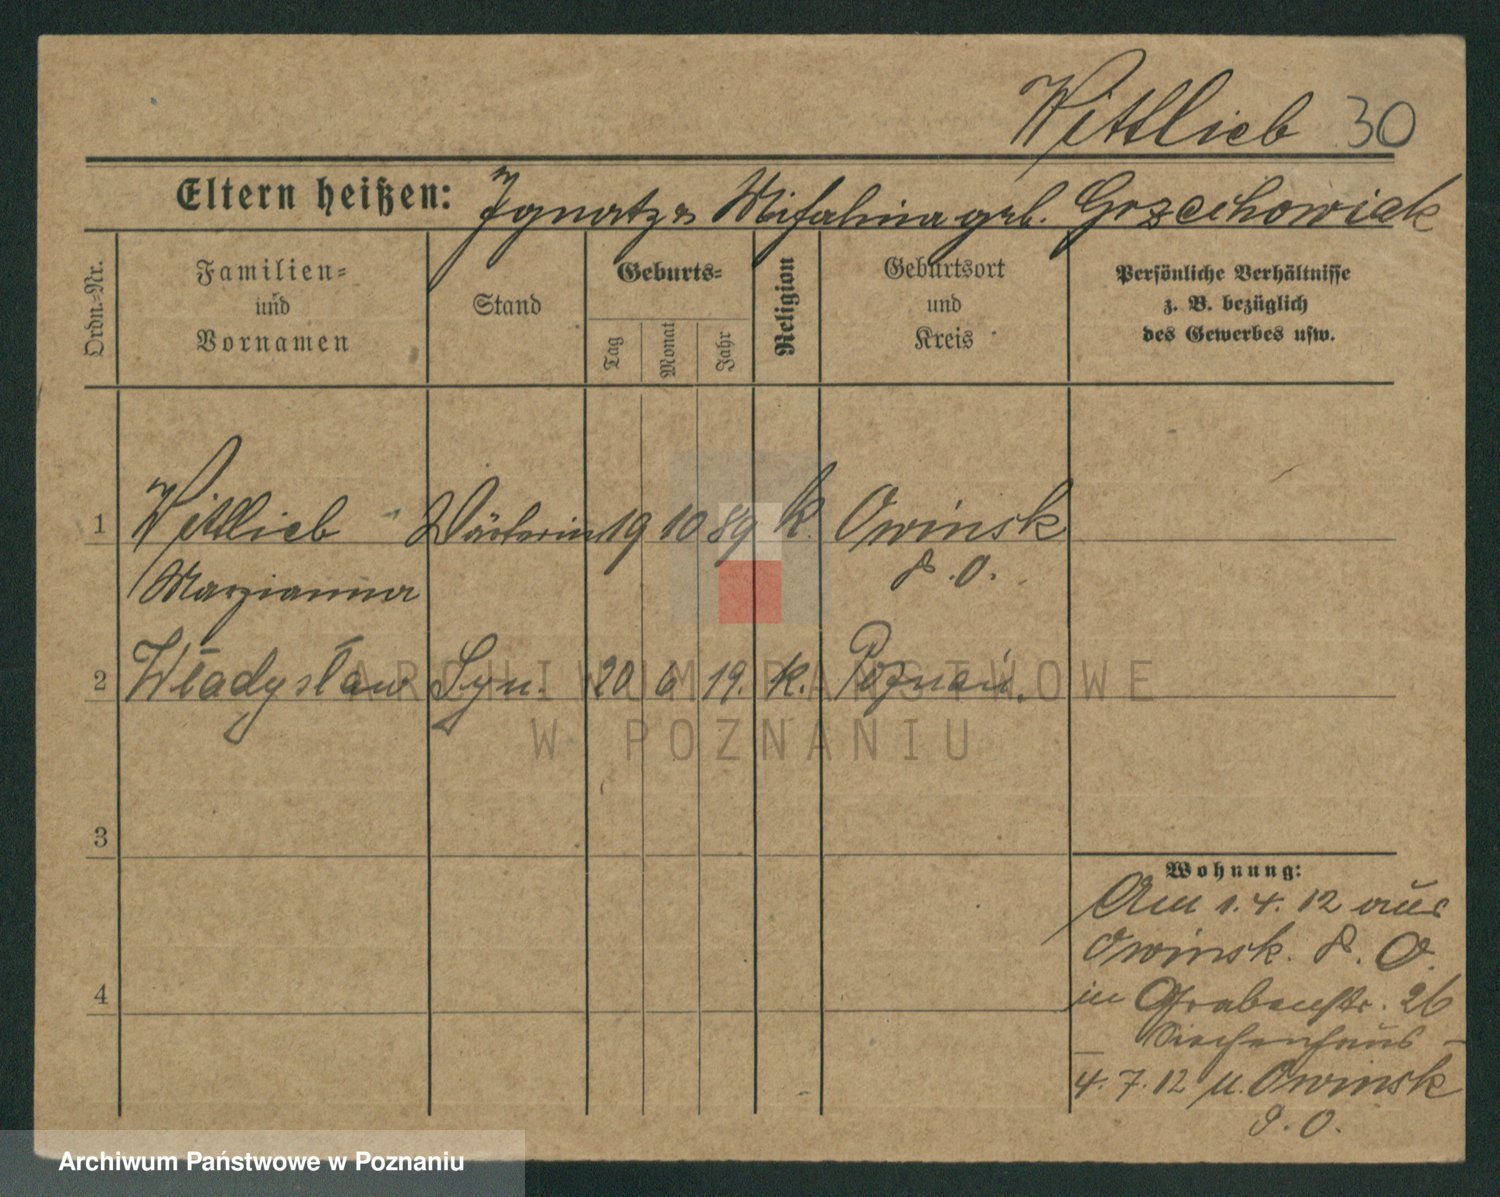 Wittlieb 30
Eltern heißen: Ignatz & Michalina geb. Grzechowiak
Ordn.-Nr.
Familien-
und
Vornamen
Stand
Geburts-
Tag
Monat
Jahr
Religion
Geburtsort
und
Kreis
Persönliche Verhältnisse
z. B. bezüglich
des Gewerbes usw.
1 Wittlieb Wärterin 19 10 89 k. Owinsk
Marzianna P. O.
2 Władysław Syn. 20 6 19. k. Poznań.
ARCHIWUM PAŃSTWOWE
W POZNANIU
3
Wohnung:
Am 1. 4. 12 aus
Owinsk. P. O.
4
in Grabenstr. 26
Siechenhaus –
4. 7. 12 n. Owinsk
P. O.
Archiwum Państwowe w Poznaniu